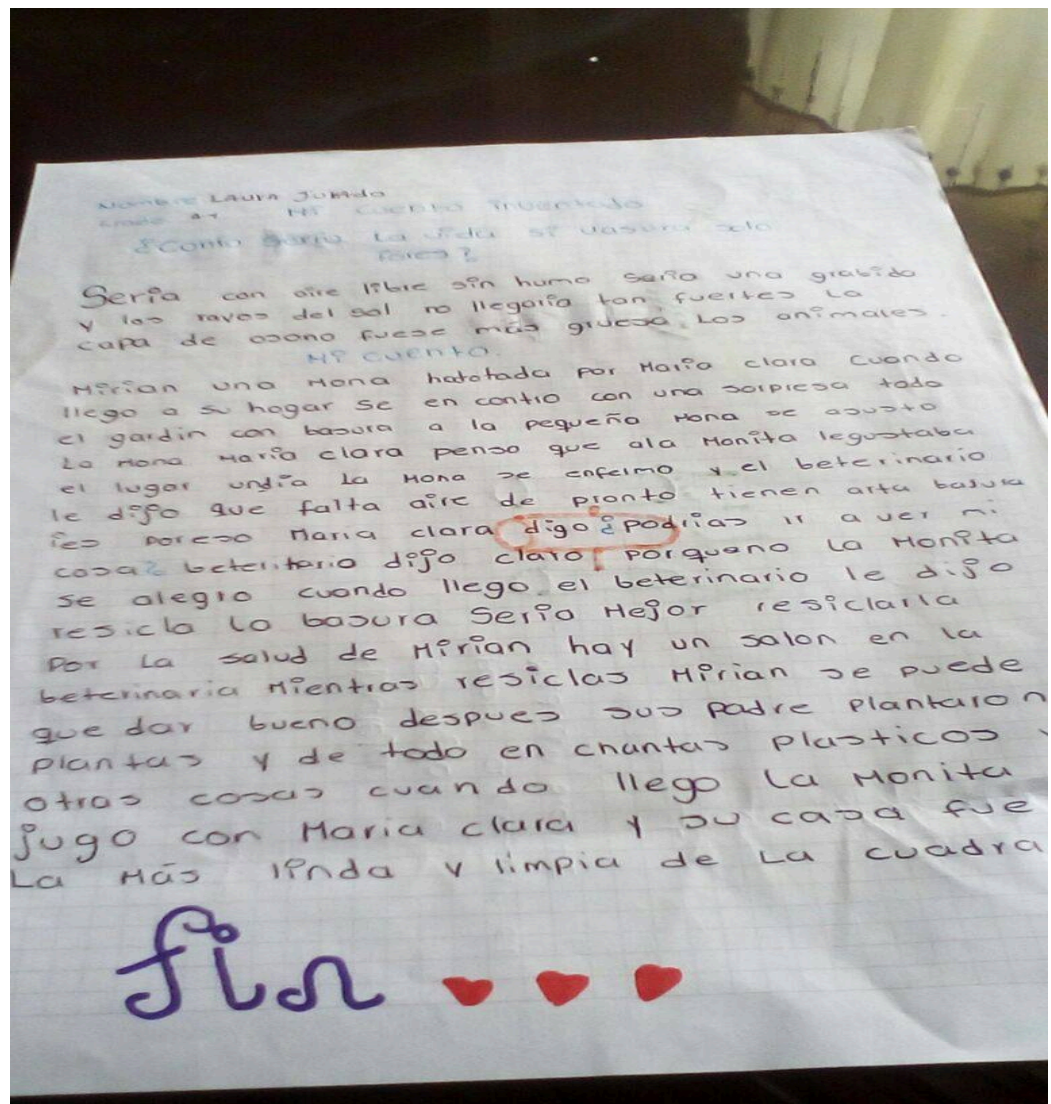 Nombre LAUra JUrado
Grado 4-1 Mi cuento inventado
¿Como seria La vida si vasura
Seria con aire libre sin humo seria una grabida
y los rayos del sol no llegaria tan fuertes La
capa de osono fuese más gruesa Los animales.
Mi cuento.
Mirian una Mona hatotada por Maria clara Cuando
llego a su hogar se en contro con una sorpresa todo
el gardin con basura a la pequeña Mona se asusto
La Mona Maria clara penso que ala Monita legustaba
el lugar undia La Mona se enfermo y el beterinario
le dijo que falta aire de pronto tienen arta basura
ies poreso Maria clara digo ¿podrias ir a ver mi
casa? beteritario dijo claro! porqueno La Monita
se alegro cuando llego el beterinario le dijo
resicla La basura Seria Mejor resiclarla
por La salud de Mirian hay un salon en la
beterinaria Mientras resiclas Mirian se puede
que dar bueno despues sus padre Plantaron
plantas y de todo en chantas Plasticos y
otras cosas cuando llego La Monita
jugo con Maria clara y su casa fue
La Más linda y limpia de La cuadra
fin